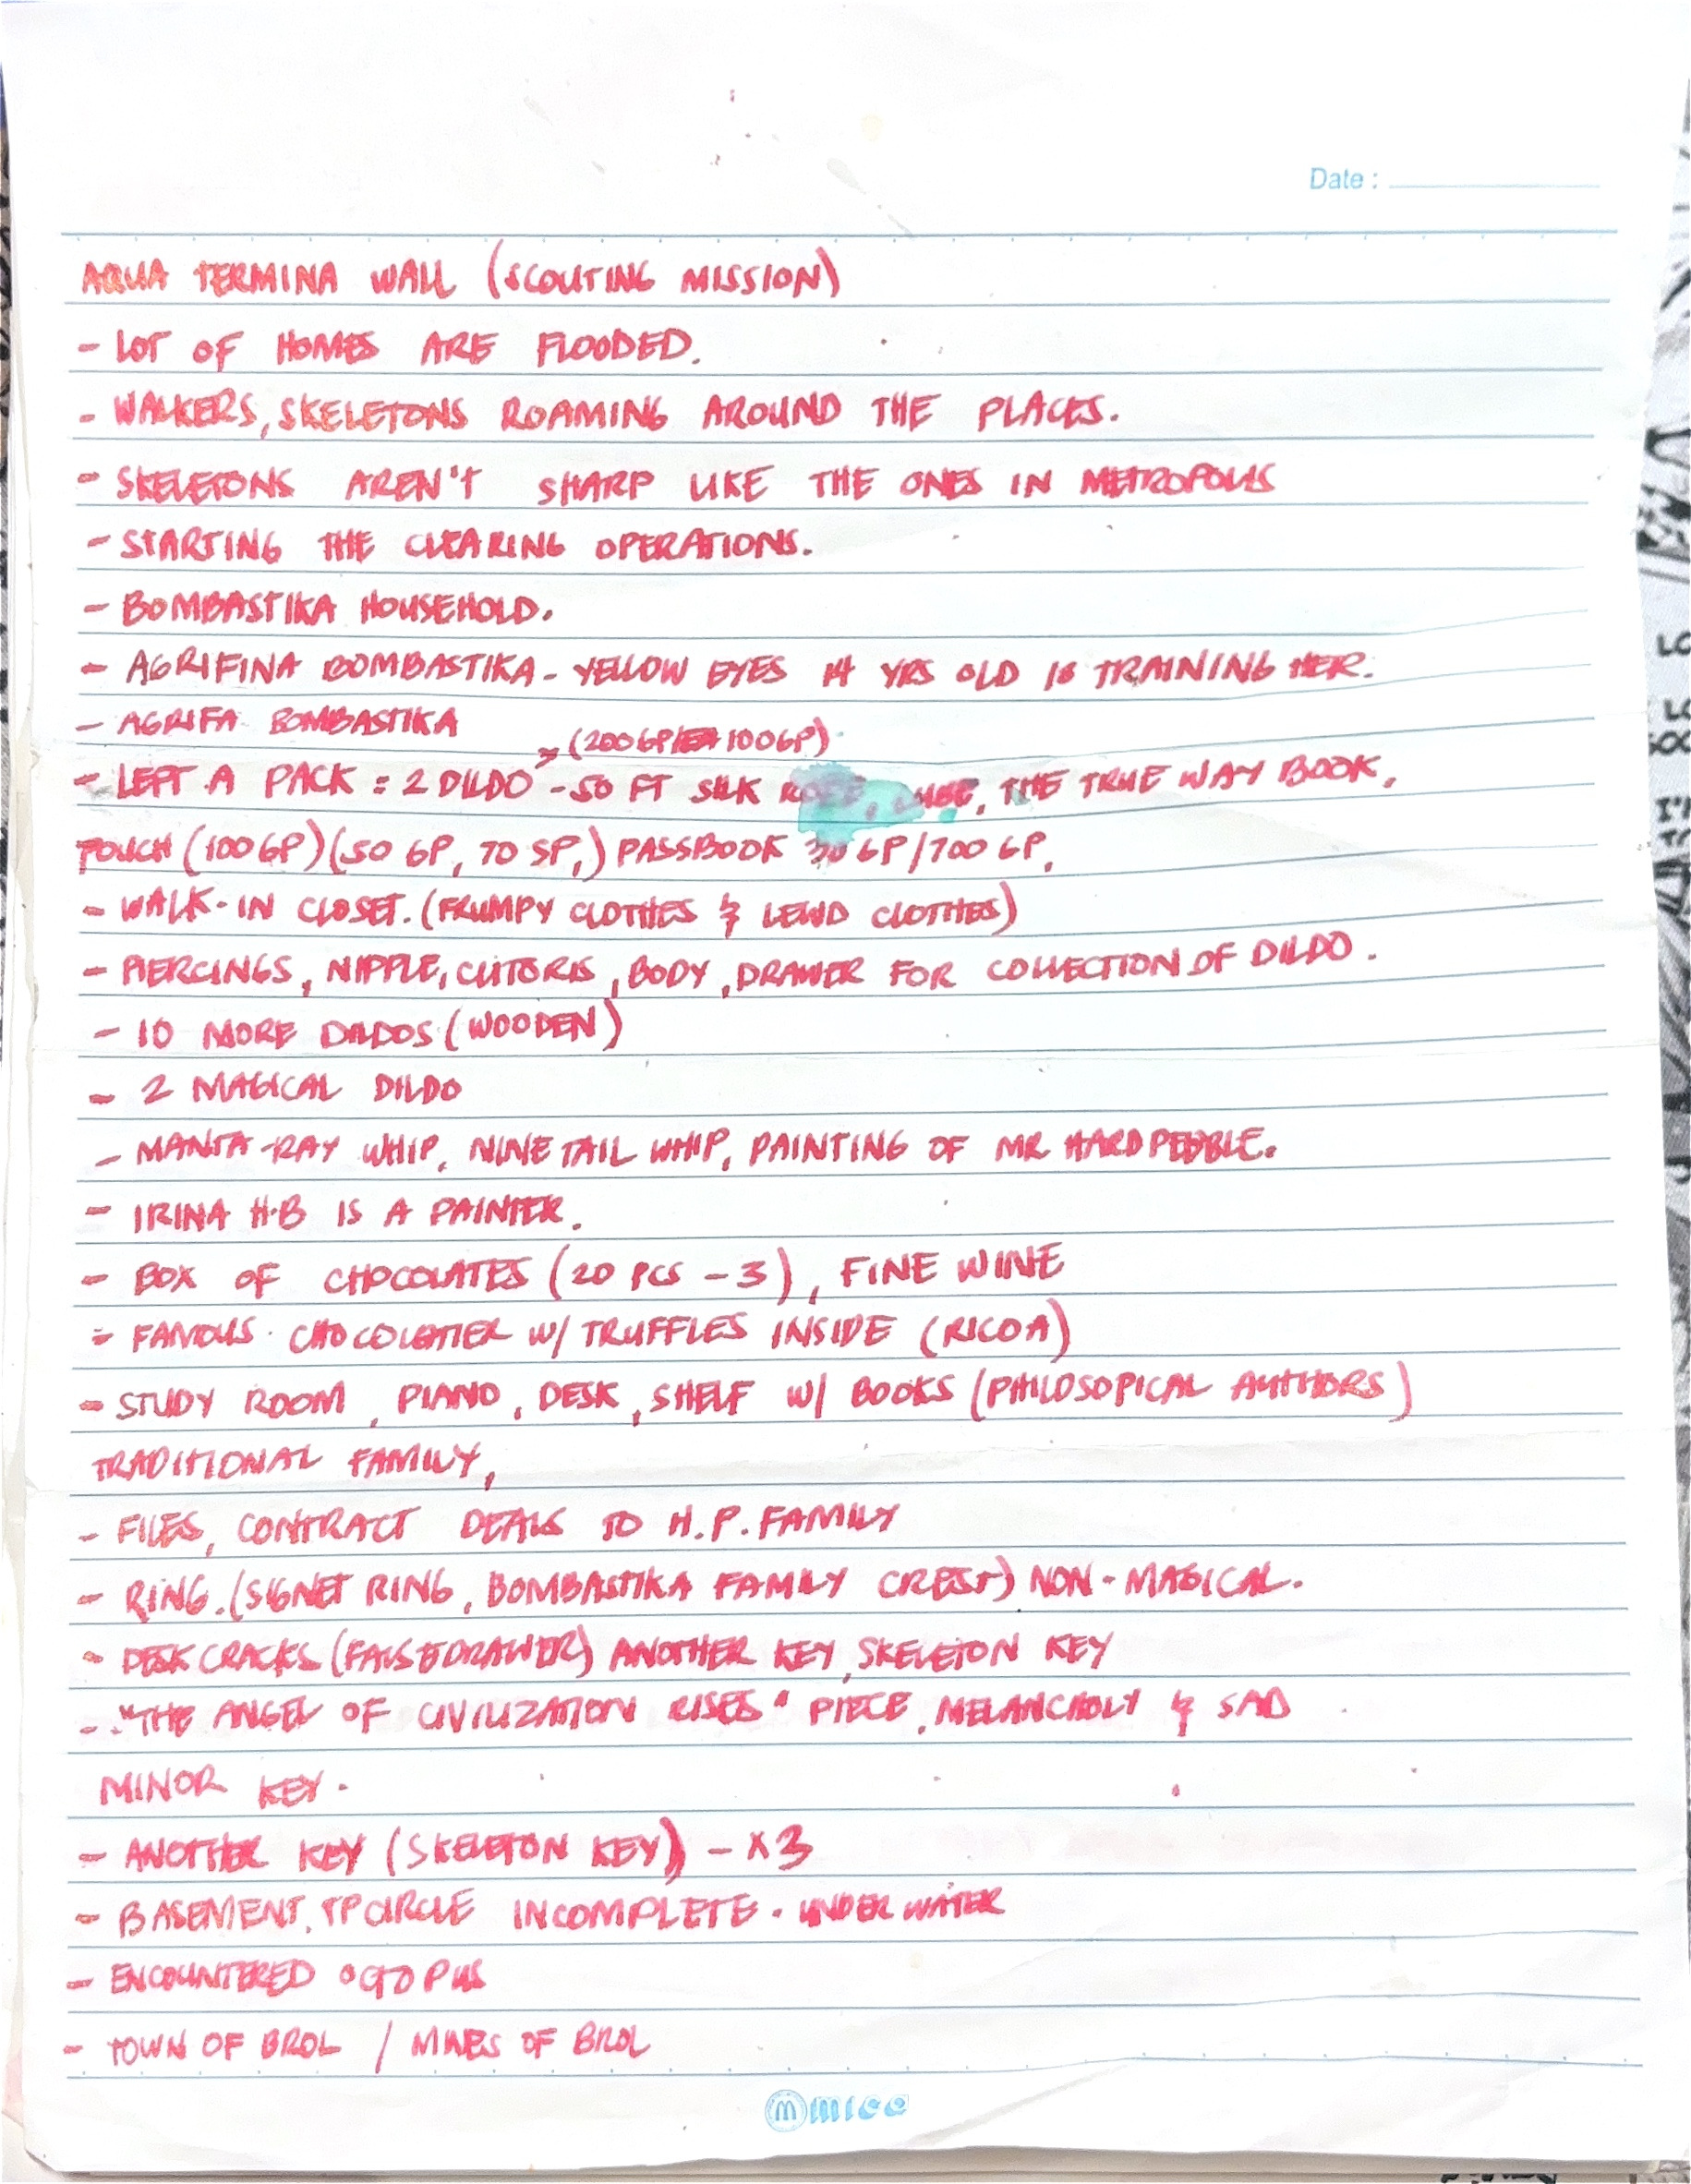 Date :
AQUA TERMINA WALL (SCOUTING MISSION)
- LOT OF HOMES ARE FLOODED.
- WALKERS, SKELETONS ROAMING AROUND THE PLACES.
- SKELETONS AREN'T SHARP LIKE THE ONES IN METROPOLIS
- STARTING THE CLEARING OPERATIONS.
- BOMBASTIKA HOUSEHOLD.
- AGRIFINA BOMBASTIKA - YELLOW EYES 14 YRS OLD IS TRAINING HER.
- AGRIFA BOMBASTIKA
(200GP/ 100GP)
- LEFT A PACK = 2 DILDO - 50 FT SILK ROPE, LUBE, THE TRUE WAY BOOK,
POUCH (100 GP) (50 GP, 70 SP,) PASSBOOK GP/700 GP,
- WALK-IN CLOSET. (FRUMPY CLOTHES & LEWD CLOTHES)
- PIERCINGS, NIPPLE, CLITORIS, BODY, DRAWER FOR COLLECTION OF DILDO.
- 10 MORE DILDOS (WOODEN)
- 2 MAGICAL DILDO
- MANTA-RAY WHIP, NINE TAIL WHIP, PAINTING OF MR HARD PEBBLE.
- IRINA H.B IS A PAINTER.
- BOX OF CHOCOLATES (20 PCS - 3), FINE WINE
- FAMOUS CHOCOLATIER W/ TRUFFLES INSIDE (RICOA)
- STUDY ROOM, PIANO, DESK, SHELF W/ BOOKS (PHILOSOPICAL AUTHORS)
TRADITIONAL FAMILY,
- FILES, CONTRACT DEALS TO H.P. FAMILY
- RING. (SIGNET RING, BOMBASTIKA FAMILY CREST) NON-MAGICAL.
- DESK CRACKS (FALSE DRAWER) ANOTHER KEY, SKELETON KEY
- "THE ANGEL OF CIVILIZATION RISES" PIECE, MELANCHOLY & SAD
MINOR KEY.
- ANOTHER KEY (SKELETON KEY) - X3
- BASEMENT, TP CIRCLE INCOMPLETE. UNDER WATER
- ENCOUNTERED OCTOPUS
- TOWN OF BROL / MINES OF BROL
mice